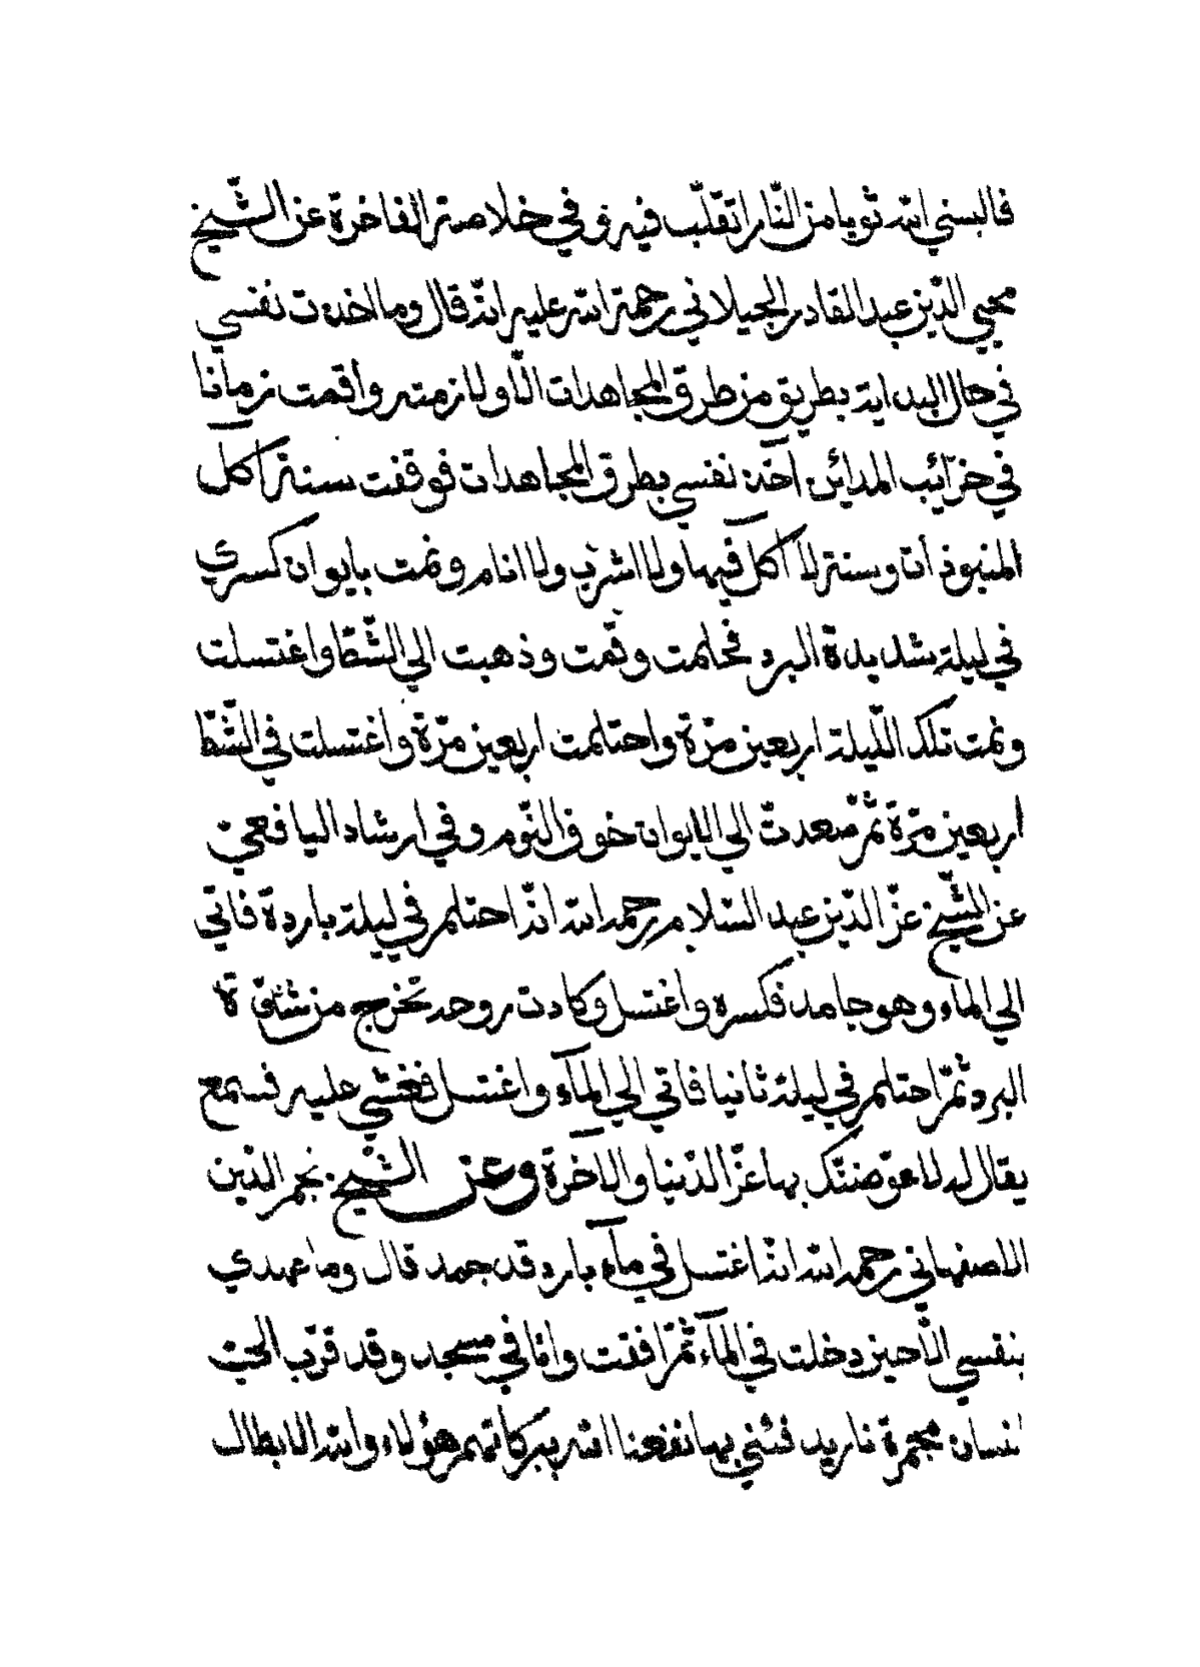 فالبسني الله ثوبا من النّار اتقلّب فيه وفي خلاصة الفاخرة عن الشّيخ
محيي الدّين عبد القادر الجيلاني رحمة الله عليه انّه قال وما اخذت نفسي
في حال البداية بطريق من طرق المجاهدات الّا ولازمته واقمت زمانا
في خرآئب المدائن آخذ نفسي بطرق المجاهدات فوقفت سنة آكل
المنبوذ أتا وسنة لا آكل فيها ولا اشرب ولا انام ونمت بايوان كسري
في ليلة شديدة البرد فحلمت وقمت وذهبت الي الشّطّ واغتسلت
ونمت تلك اللّيلة اربعين مرّة واحتلمت اربعين مرّة واغتسلت في الشّطّ
اربعين مرّة ثمّ صعدت الي الايوان خوف النّوم وفي ارشاد اليافعي
عن الشّيخ عزّ الدّين عبد السّلام رحمه الله انّه احتلم في ليلة باردة فاتي
الي الماء وهو جامد فكسره واغتسل وكادت روحه تخرج من شدّة
البرد ثمّ احتلم في ليلة ثانيا فاتي الي المآء واغتسل فغشي عليه فسمع
يقال له لاعوّضنّك بها عزّ الدّنيا والآخرة وعن الشّيخ نجم الدّين
الاصفهاني رحمه الله انّه اغتسل في مآء بارد قد جمد قال وما عهدي
بنفسي الّا حين دخلت في المآء ثمّ افقت وانا في مسجد وقد قرّب الي
انسان مجمرة نار يدفئني بها نفعنا الله ببركاتهم هؤلاء والله الابطال